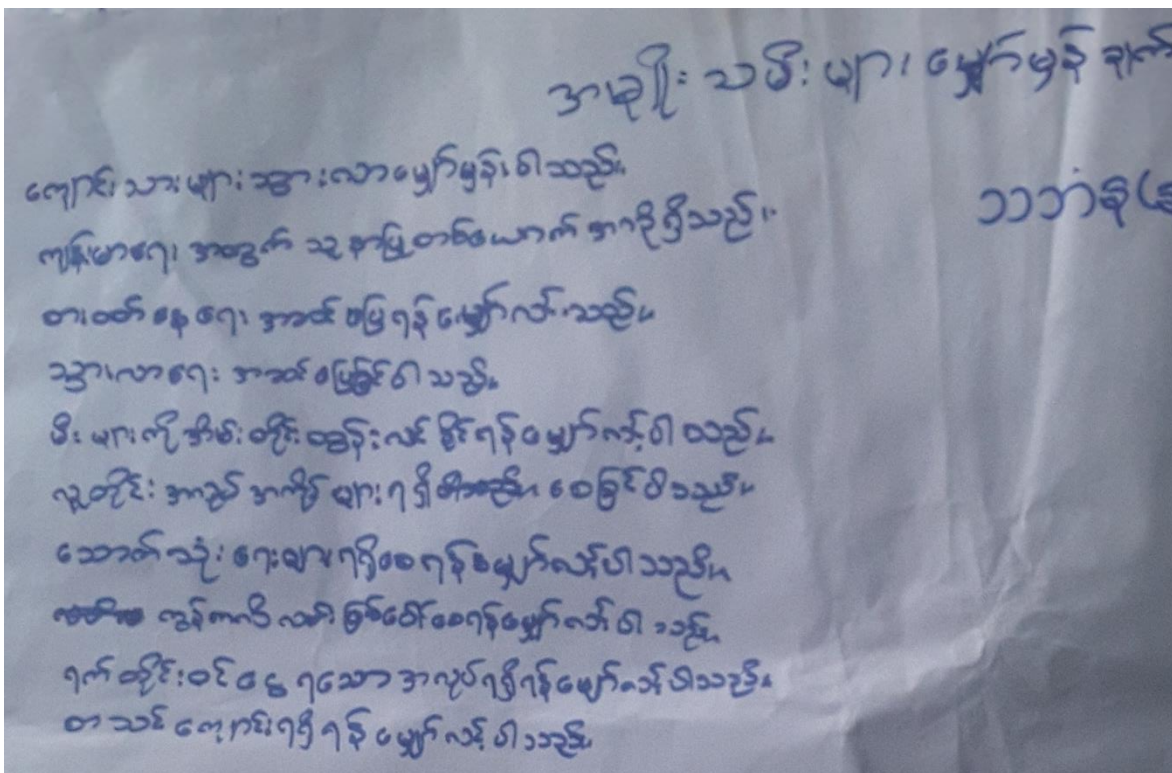 အမျိုးသမီးများ မျှော်မှန်းချက်
ကျောင်းသားများ သွားလာမျှော်မှန်းပါသည်။
သဘံန
ကျန်းမာရေး အတွက် သူနာပြုတစ်ယောက် အာခိုရှိသည်။
စားဝတ်နေရေး အဆင်ပြေရန် မျှော်လင့်သည်။
သွားလာရေး အဆင်ပြေခြင်ပါသည်။
မီးများကို အိမ်းတိုင်းထွန်းလင်းနိုင်ရန် မျှော်လင့်ပါသည်။
လူတိုင်း အလုပ်အကိုင်များရရှိ စေခြင်ပါသည်။
သောက်သုံးရေးများရရှိစေရန် မျှော်လင့်ပါသည်။
ကွန်ကာလီလမ်း ဖြစ်ပေါ်စေရန် မျှော်လင့်ပါသည်။
ရက်တိုင်းဝင်ငွေရသော အလုပ်ရရှိရန် မျှော်လင့်ပါသည်။
စာသင်ကျောင်းရရှိရန် မျှော်လင့်ပါသည်။